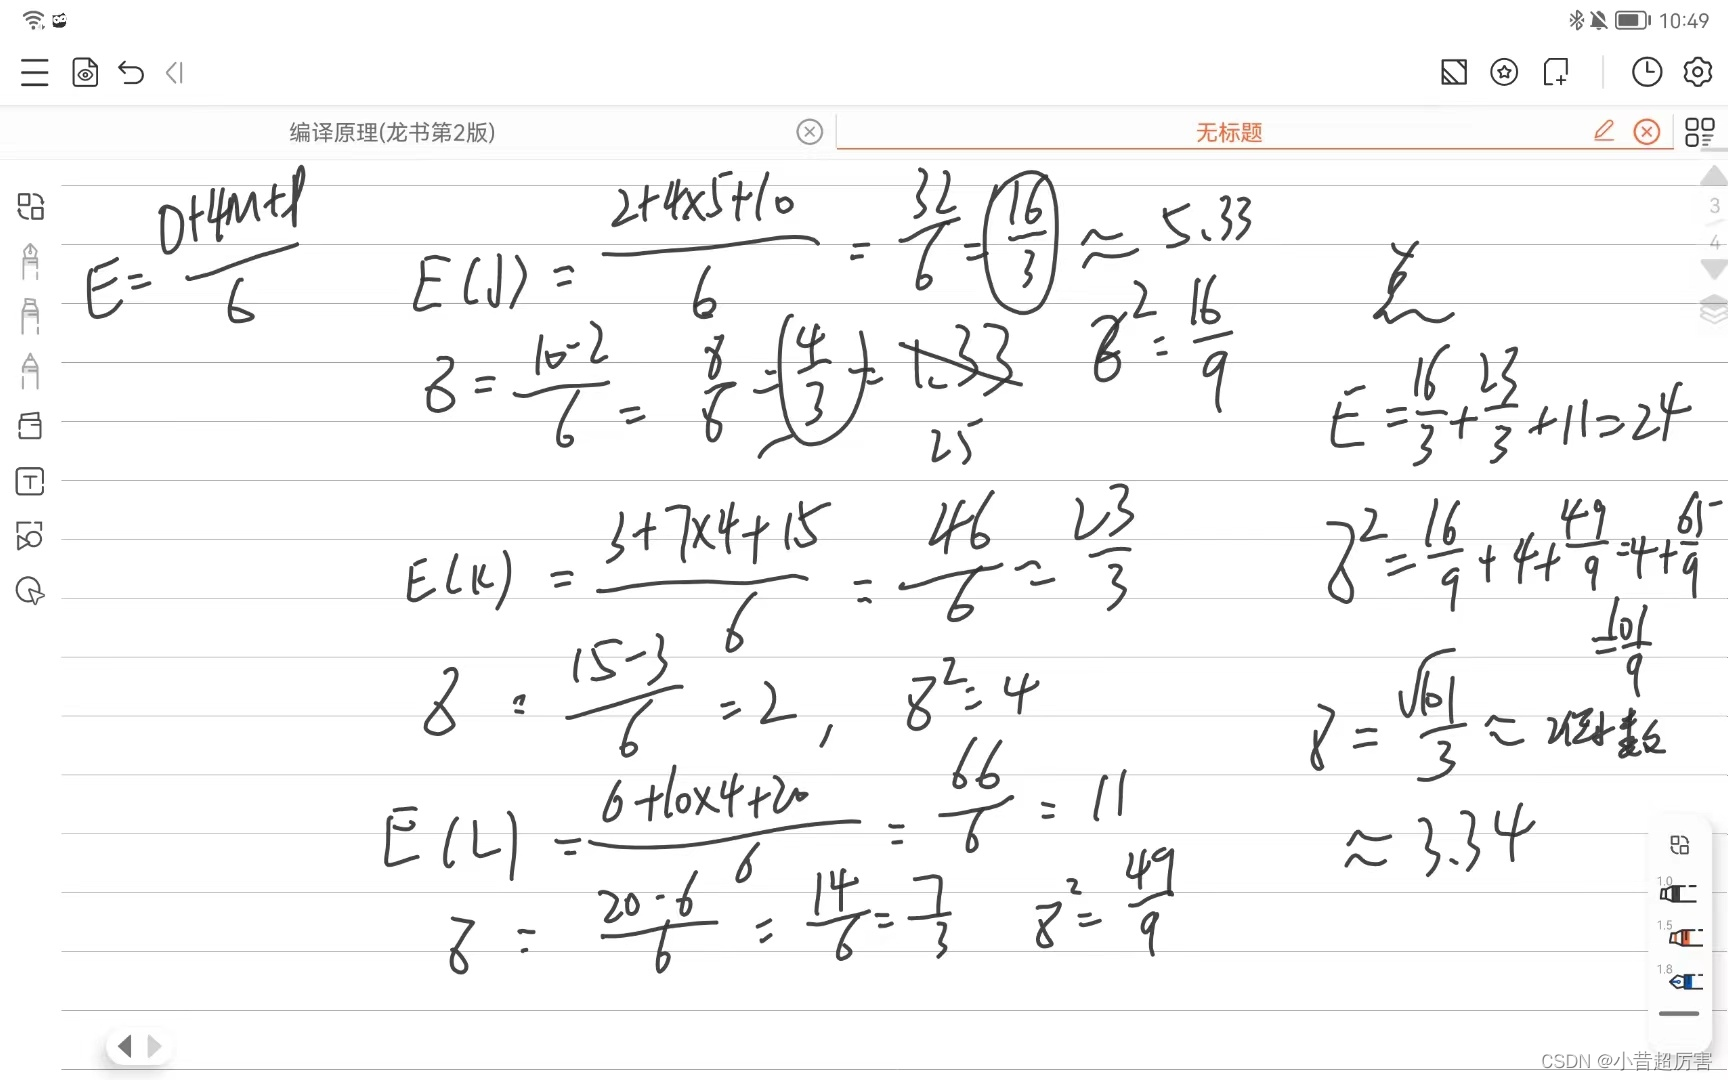 10:49
编译原理(龙书第2版)
无标题
3
4
E = O+4M+P / 6
E(J) = 2+4×5+10 / 6 = 32/6 = 16/3 ≈ 5.33
8 = 10-2 / 6 = 8/6 = 4/3 = 1.33
8² = 16/9
25
E(K) = 3+7×4+15 / 6 = 46/6 = 23/3
8 = 15-3 / 6 = 2, 8² = 4
E(L) = 6+10×4+20 / 6 = 66/6 = 11
8 = 20-6 / 6 = 14/6 = 7/3 8² = 49/9
E = 16/3 + 23/3 + 11 = 24
8² = 16/9 + 4 + 49/9 = 4 + 65/9
= 101/9
8 = √101 / 3 ≈
≈ 3.34
1.0
1.5
1.8
CSDN @小昔超厉害